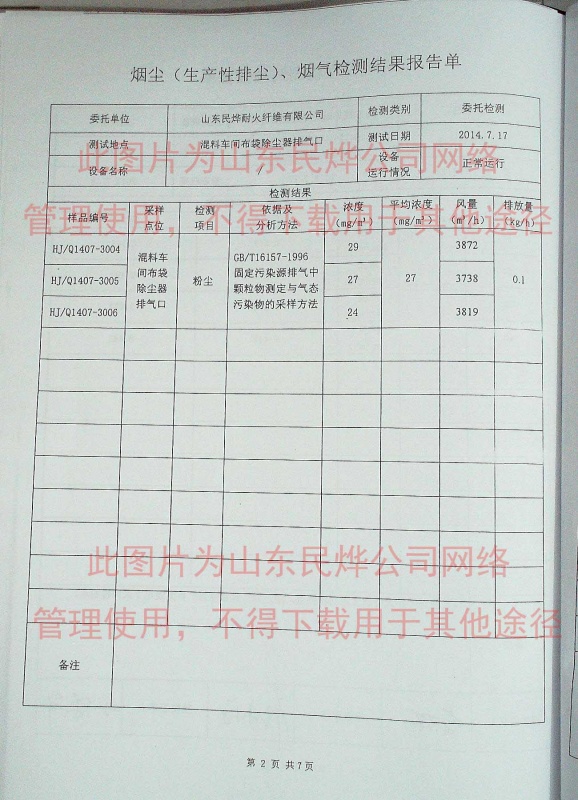 烟尘（生产性排尘）、烟气检测结果报告单
委托单位 山东民烨耐火纤维有限公司 检测类别 委托检测
测试地点 混料车间布袋除尘器排气口 测试日期 2014.7.17
设备名称 / 设备运行情况 正常运行
此图片为山东民烨公司网络
管理使用，不得下载用于其他途径
检测结果
样品编号 采样点位 检测项目 依据及分析方法 浓度(mg/m³) 平均浓度(mg/m³) 风量(m³/h) 排放量(kg/h)
HJ/Q1407-3004 29 3872
HJ/Q1407-3005 27 3738
HJ/Q1407-3006 24 3819
混料车
间布袋
除尘器
排气口
粉尘
GB/T16157-1996
固定污染源排气中
颗粒物测定与气态
污染物的采样方法
27
0.1
此图片为山东民烨公司网络
管理使用，不得下载用于其他途径
备注
第 2 页 共7页